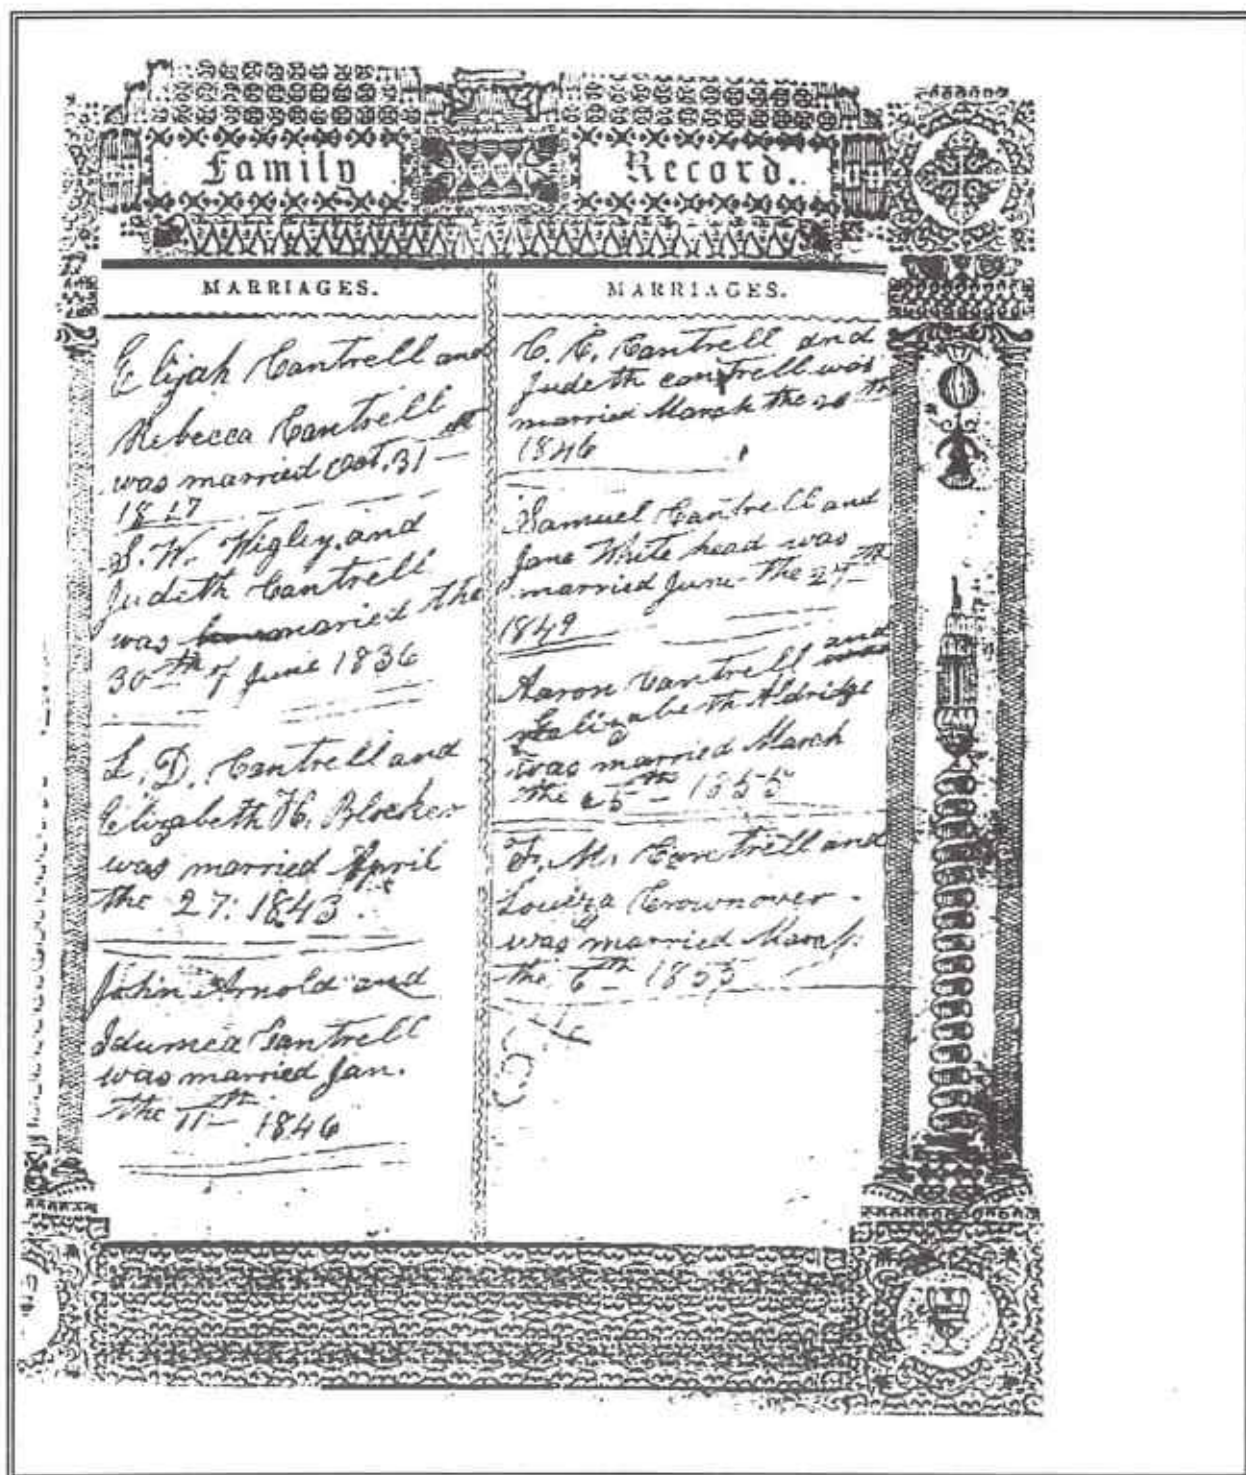 Family Record.
MARRIAGES.
Elijah Cantrell and
Rebecca Cantrell
was married Oct. 31st
18
S. W. Wigley, and
Judeth Cantrell
was maried the
30th of June 1836
L. D. Cantrell and
Elizabeth H. Blocker
was married April
the 27: 1843.
John Arnold and
Idumea Cantrell
was married Jan.
the 11th 1846
MARRIAGES.
C. C. Cantrell and
Judeth cantrell was
married March the th
1846
Samuel Cantrell and
Jane White head was
married June the th
1849
Aaron Cantrell and
Aldridge
was married March
the th 1855
F. M. Cantrell and
Louiza Crownover
was married
the 6th 1855